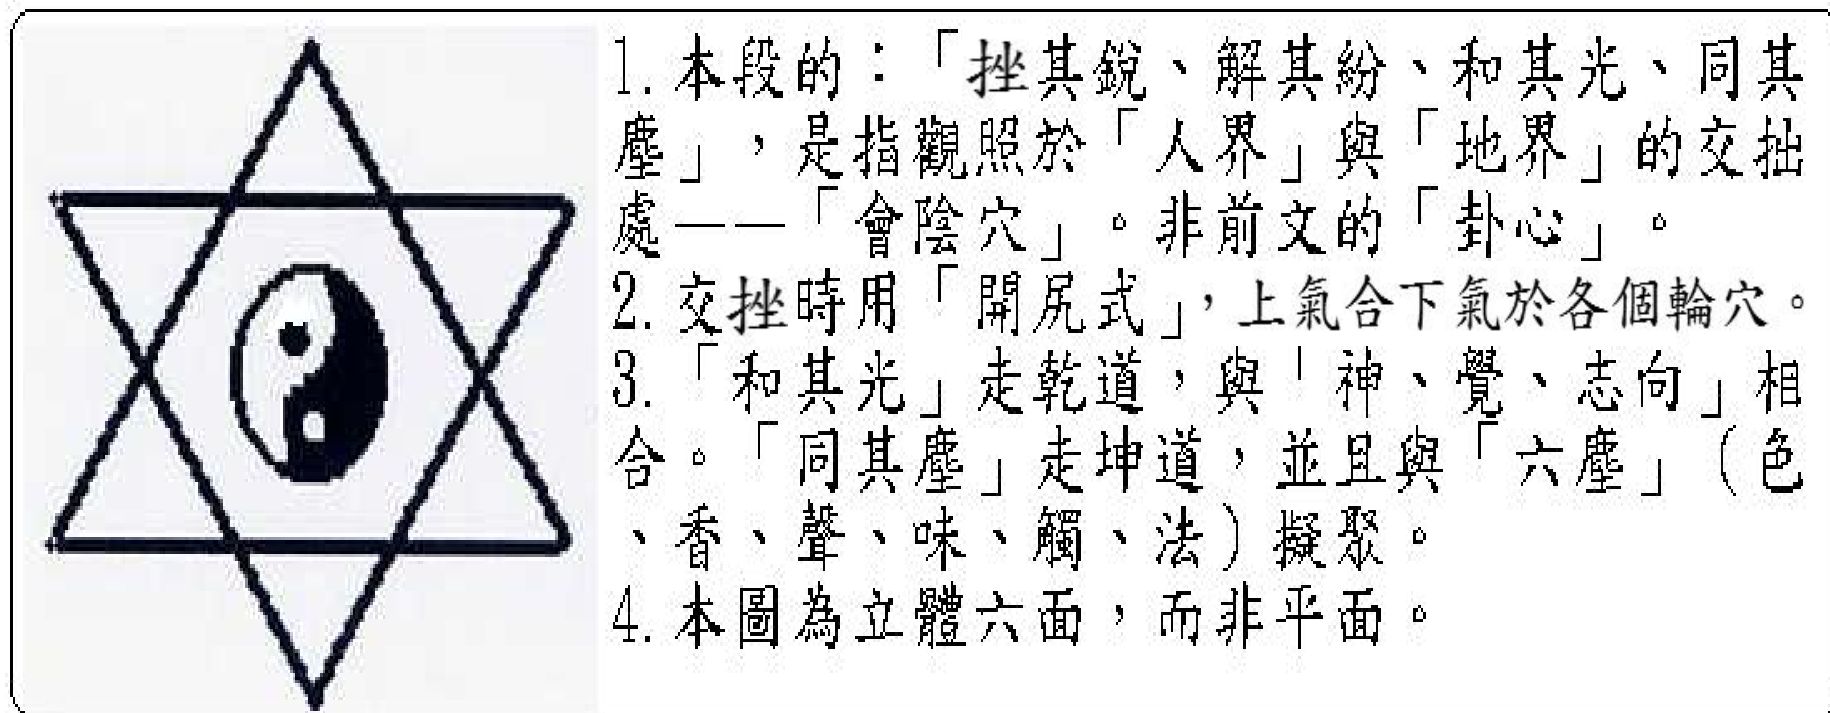 1.本段的：「挫其銳、解其紛、和其光、同其
塵」，是指觀照於「人界」與「地界」的交拙
處——「會陰穴」。非前文的「卦心」。
2.交挫時用「開尻式」，上氣合下氣於各個輪穴。
3.「和其光」走乾道，與「神、覺、志向」相
合。「同其塵」走坤道，並且與「六塵」（色
、香、聲、味、觸、法）擬聚。
4.本圖為立體六面，而非平面。